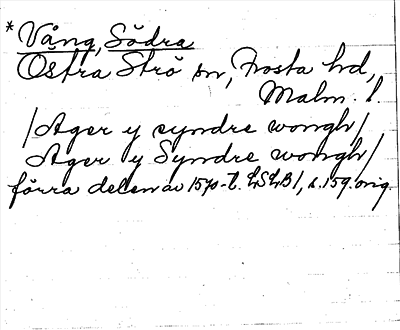 * Vång, Södra
Östra Strö sn, Frosta hd,
Malm. l.
/Ager y syndre wongh/
Ager y Syndre wongh/
förra delen av 1570-t. LSLB 1, s. 159. orig.